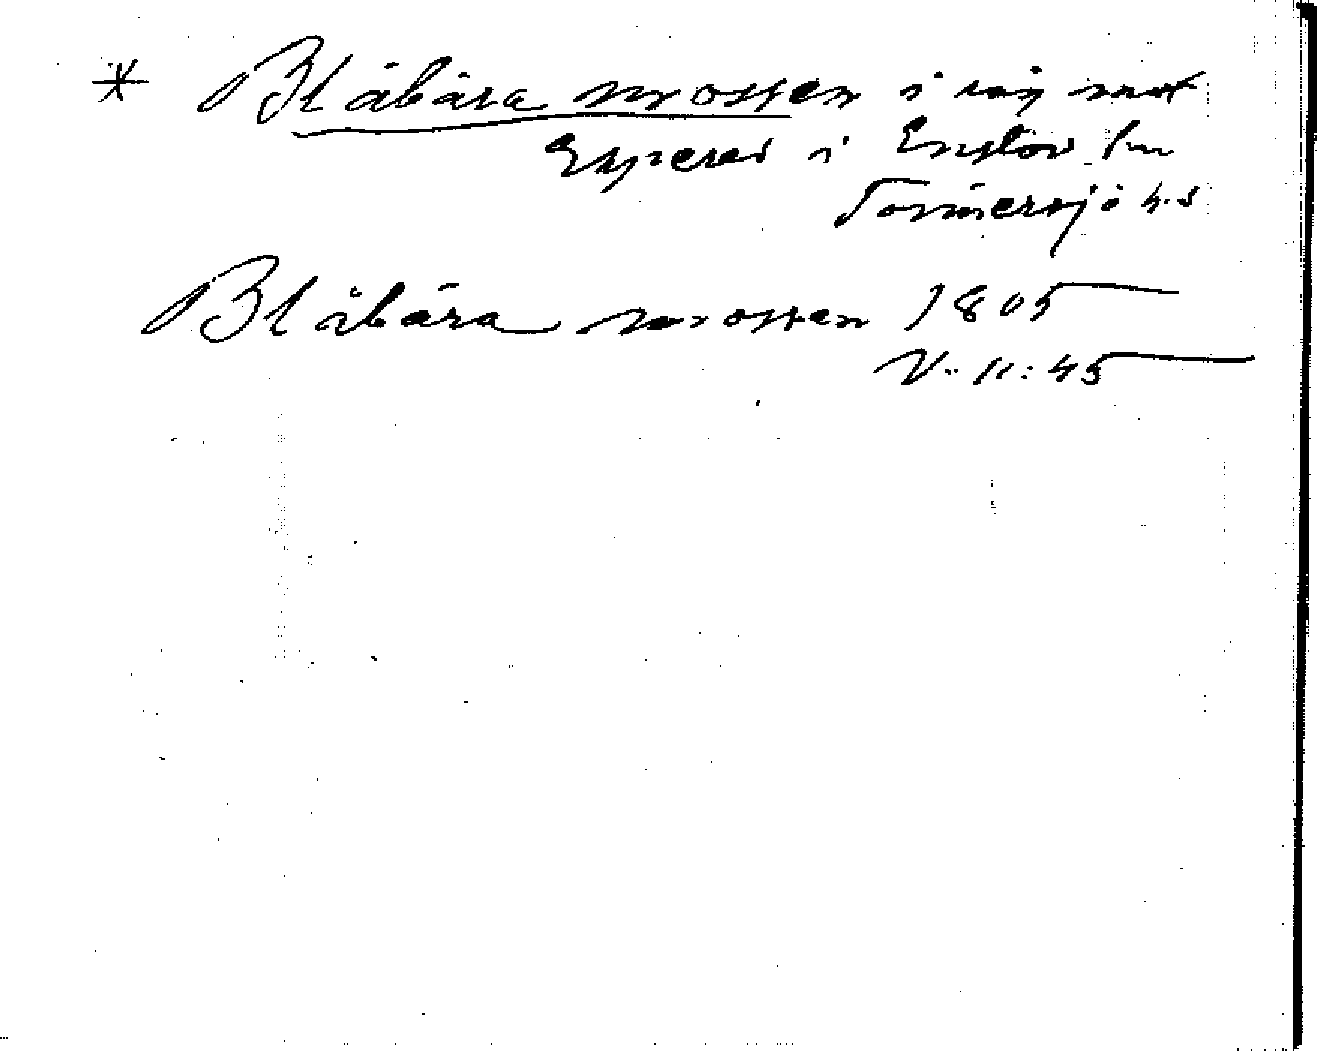 * Blåbära mossen i väg mot
Espered i Enslöv sn
Tönnersjö h.d
Blåbära mossen 1805
V.. 11:45